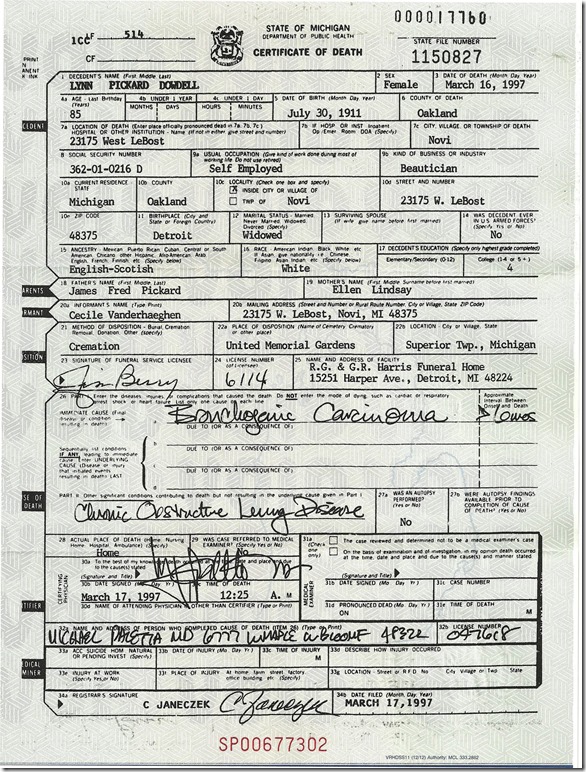 000017760
STATE OF MICHIGAN
DEPARTMENT OF PUBLIC HEALTH
CERTIFICATE OF DEATH
1CC LF 514
CF
STATE FILE NUMBER
1150827
PRINT
IN
ANENT
K INK
1 DECEDENT'S NAME (First Middle Last)
LYNN PICKARD DOWDELL
2 SEX
Female
3 DATE OF DEATH (Month Day Year)
March 16, 1997
4a AGE - Last Birthday (Years)
85
4b UNDER 1 YEAR
MONTHS DAYS
4c UNDER 1 DAY
HOURS MINUTES
5 DATE OF BIRTH (Month, Day, Year)
July 30, 1911
6 COUNTY OF DEATH
Oakland
CEDENT
7a LOCATION OF DEATH (Enter place officially pronounced dead in 7a, 7b, 7c)
HOSPITAL OR OTHER INSTITUTION - Name (If not in either give street and number)
23175 West LeBost
7b IF HOSP OR INST Inpatient
Op/Emer Room DOA (Specify)
7c CITY, VILLAGE, OR TOWNSHIP OF DEATH
Novi
8 SOCIAL SECURITY NUMBER
362-01-0216 D
9a USUAL OCCUPATION (Give kind of work done during most of working life. Do not use retired)
Self Employed
9b KIND OF BUSINESS OR INDUSTRY
Beautician
10a CURRENT RESIDENCE
STATE
Michigan
10b COUNTY
Oakland
10c LOCALITY (Check one box and specify)
INSIDE CITY OR VILLAGE OF
TWP OF Novi
10d STREET AND NUMBER
23175 W. LeBost
10e ZIP CODE
48375
11 BIRTHPLACE (City and State or Foreign Country)
Detroit
12 MARITAL STATUS - Married, Never Married, Widowed, Divorced (Specify)
Widowed
13 SURVIVING SPOUSE
(If wife, give name before first married)
14 WAS DECEDENT EVER IN U.S. ARMED FORCES?
(Specify Yes or No)
No
15 ANCESTRY - Mexican, Puerto Rican, Cuban, Central or South American, Chicano, other Hispanic, Afro-American, Arab, English, French, Finnish, etc. (Specify below)
English-Scotish
16 RACE - American Indian, Black, White, etc.
If Asian, give nationality i.e. Chinese, Filipino, Asian Indian, etc. (Specify below)
White
17 DECEDENT'S EDUCATION (Specify only highest grade completed)
Elementary/Secondary (0-12) College (1-4 or 5+)
4
ARENTS
18 FATHER'S NAME (First Middle Last)
James Fred Pickard
19 MOTHER'S NAME (First Middle Surname before first married)
Ellen Lindsay
RMANT
20a INFORMANT'S NAME (Type/Print)
Cecile Vanderhaeghen
20b MAILING ADDRESS (Street and Number or Rural Route Number, City or Village, State, ZIP Code)
23175 W. LeBost, Novi, MI 48375
21 METHOD OF DISPOSITION - Burial, Cremation, Removal, Donation, Other (specify)
Cremation
22a PLACE OF DISPOSITION (Name of Cemetery, Crematory or other place)
United Memorial Gardens
22b LOCATION - City or Village, State
Superior Twp., Michigan
SITION
23 SIGNATURE OF FUNERAL SERVICE LICENSEE
Jim Berry
24 LICENSE NUMBER
(of Licensee)
6114
25 NAME AND ADDRESS OF FACILITY
R.G. & G.R. Harris Funeral Home
15251 Harper Ave., Detroit, MI 48224
26 PART I Enter the diseases, injuries, or complications that caused the death. Do NOT enter the mode of dying, such as cardiac or respiratory arrest, shock or heart failure. List only one cause on each line.
Approximate Interval Between Onset and Death
IMMEDIATE CAUSE (Final disease or condition resulting in death)
a Bronchogenic Carcinoma
DUE TO (OR AS A CONSEQUENCE OF):
Sequentially list conditions IF ANY, leading to immediate cause. Enter UNDERLYING CAUSE (Disease or injury that initiated events resulting in death) LAST
b
DUE TO (OR AS A CONSEQUENCE OF):
c
DUE TO (OR AS A CONSEQUENCE OF):
d
SE OF
DEATH
PART II Other significant conditions contributing to death but not resulting in the underlying cause given in Part I
Chronic Obstructive Lung Disease
27a WAS AN AUTOPSY PERFORMED? (Specify Yes or No)
No
27b WERE AUTOPSY FINDINGS AVAILABLE PRIOR TO COMPLETION OF CAUSE OF DEATH? (Yes or No)
28 ACTUAL PLACE OF DEATH (Home, Nursing Home, Hospital, Ambulance) (Specify)
Home
29 WAS CASE REFERRED TO MEDICAL EXAMINER? (Specify Yes or No)
No
30a To the best of my knowledge, death occurred at the time, date and place and due to the cause(s) stated
(Signature and Title)
30b DATE SIGNED (Mo., Day, Yr.)
March 17, 1997
30c TIME OF DEATH
12:25 A. M
30d NAME OF ATTENDING PHYSICIAN IF OTHER THAN CERTIFIER (Type or Print)
CERTIFYING PHYSICIAN
31a (Check one only)
The case reviewed and determined not to be a medical examiner's case
On the basis of examination and/or investigation, in my opinion death occurred at the time, date and place and due to the cause(s) and manner stated
(Signature and Title)
31b DATE SIGNED (Mo., Day, Yr.)
31c CASE NUMBER
MEDICAL EXAMINER
31d PRONOUNCED DEAD (Mo., Day, Yr.)
ON
31e TIME OF DEATH
M
TIFIER
32a NAME AND ADDRESS OF PERSON WHO COMPLETED CAUSE OF DEATH (ITEM 26) (Type or Print)
MICHAEL PALETTA MD 6777 W MAPLE W BLOOMF 48322
32b LICENSE NUMBER
33a ACC, SUICIDE, HOM, NATURAL OR PENDING INVEST (Specify)
33b DATE OF INJURY (Mo., Day, Yr.)
33c TIME OF INJURY
M
33d DESCRIBE HOW INJURY OCCURRED
DICAL
MINER
33e INJURY AT WORK
(Specify Yes or No)
33f PLACE OF INJURY - At home, farm, street, factory, office building, etc. (Specify)
33g LOCATION - Street or R.F.D. No City, Village or Twp State
34a REGISTRAR'S SIGNATURE
C JANECZEK C Janeczek
34b DATE FILED (Month, Day, Year)
MARCH 17, 1997
SP00677302
VRHDSS11 (12/12) Authority: MCL 333.2882